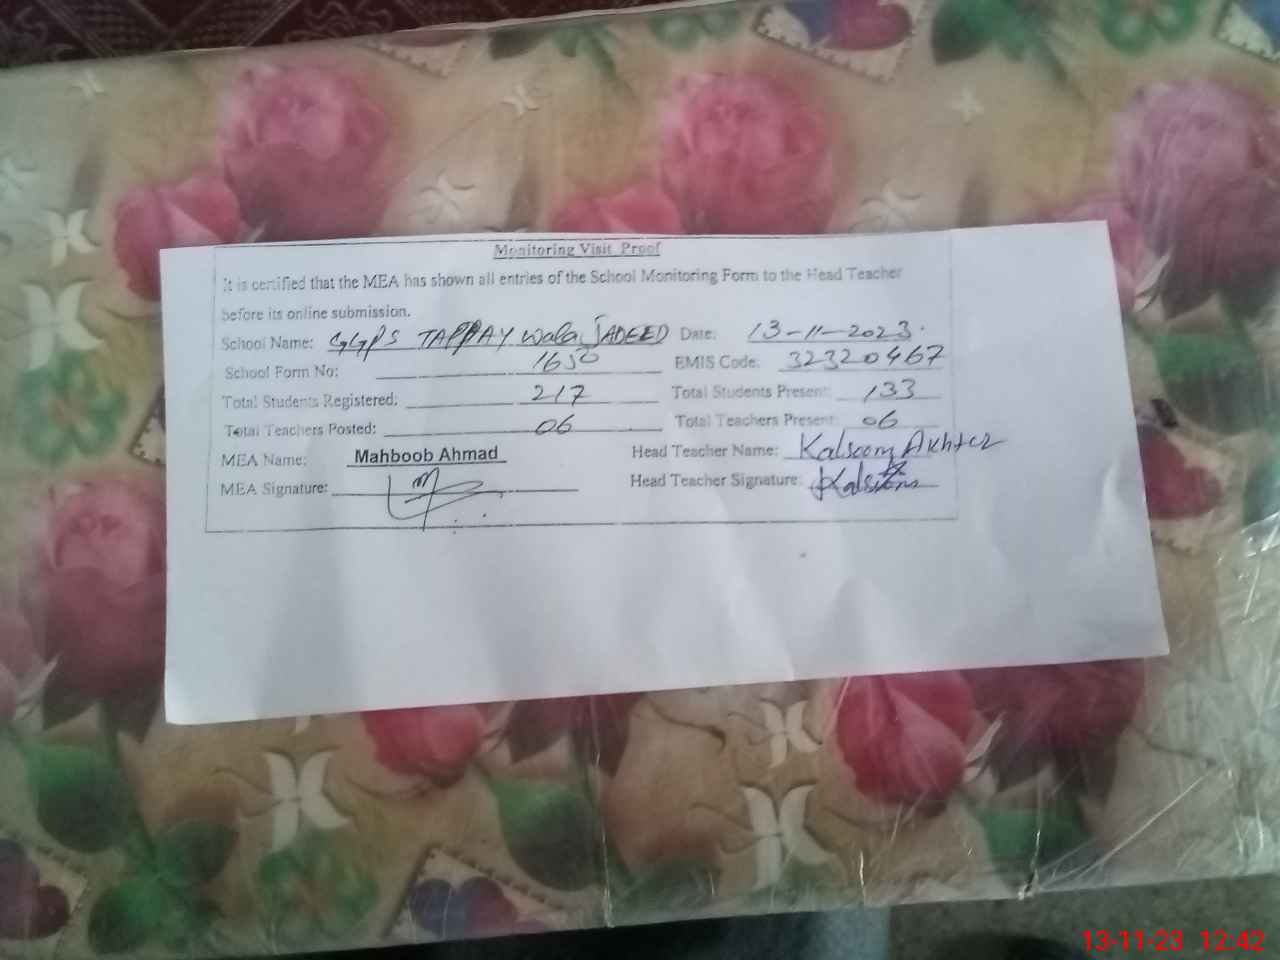 Monitoring Visit Proof
It is certified that the MEA has shown all entries of the School Monitoring Form to the Head Teacher
before its online submission.
School Name: GGPS TAPPAY Wala JADEED Date: 13-11-2023.
School Form No: 1650 EMIS Code: 32320467
Total Students Registered: 217 Total Students Present: 133
Total Teachers Posted: 06 Total Teachers Present: 06
MEA Name: Mahboob Ahmad Head Teacher Name: Kalsoom Akhter
MEA Signature: Head Teacher Signature: Kalsoom
13-11-23 12:42